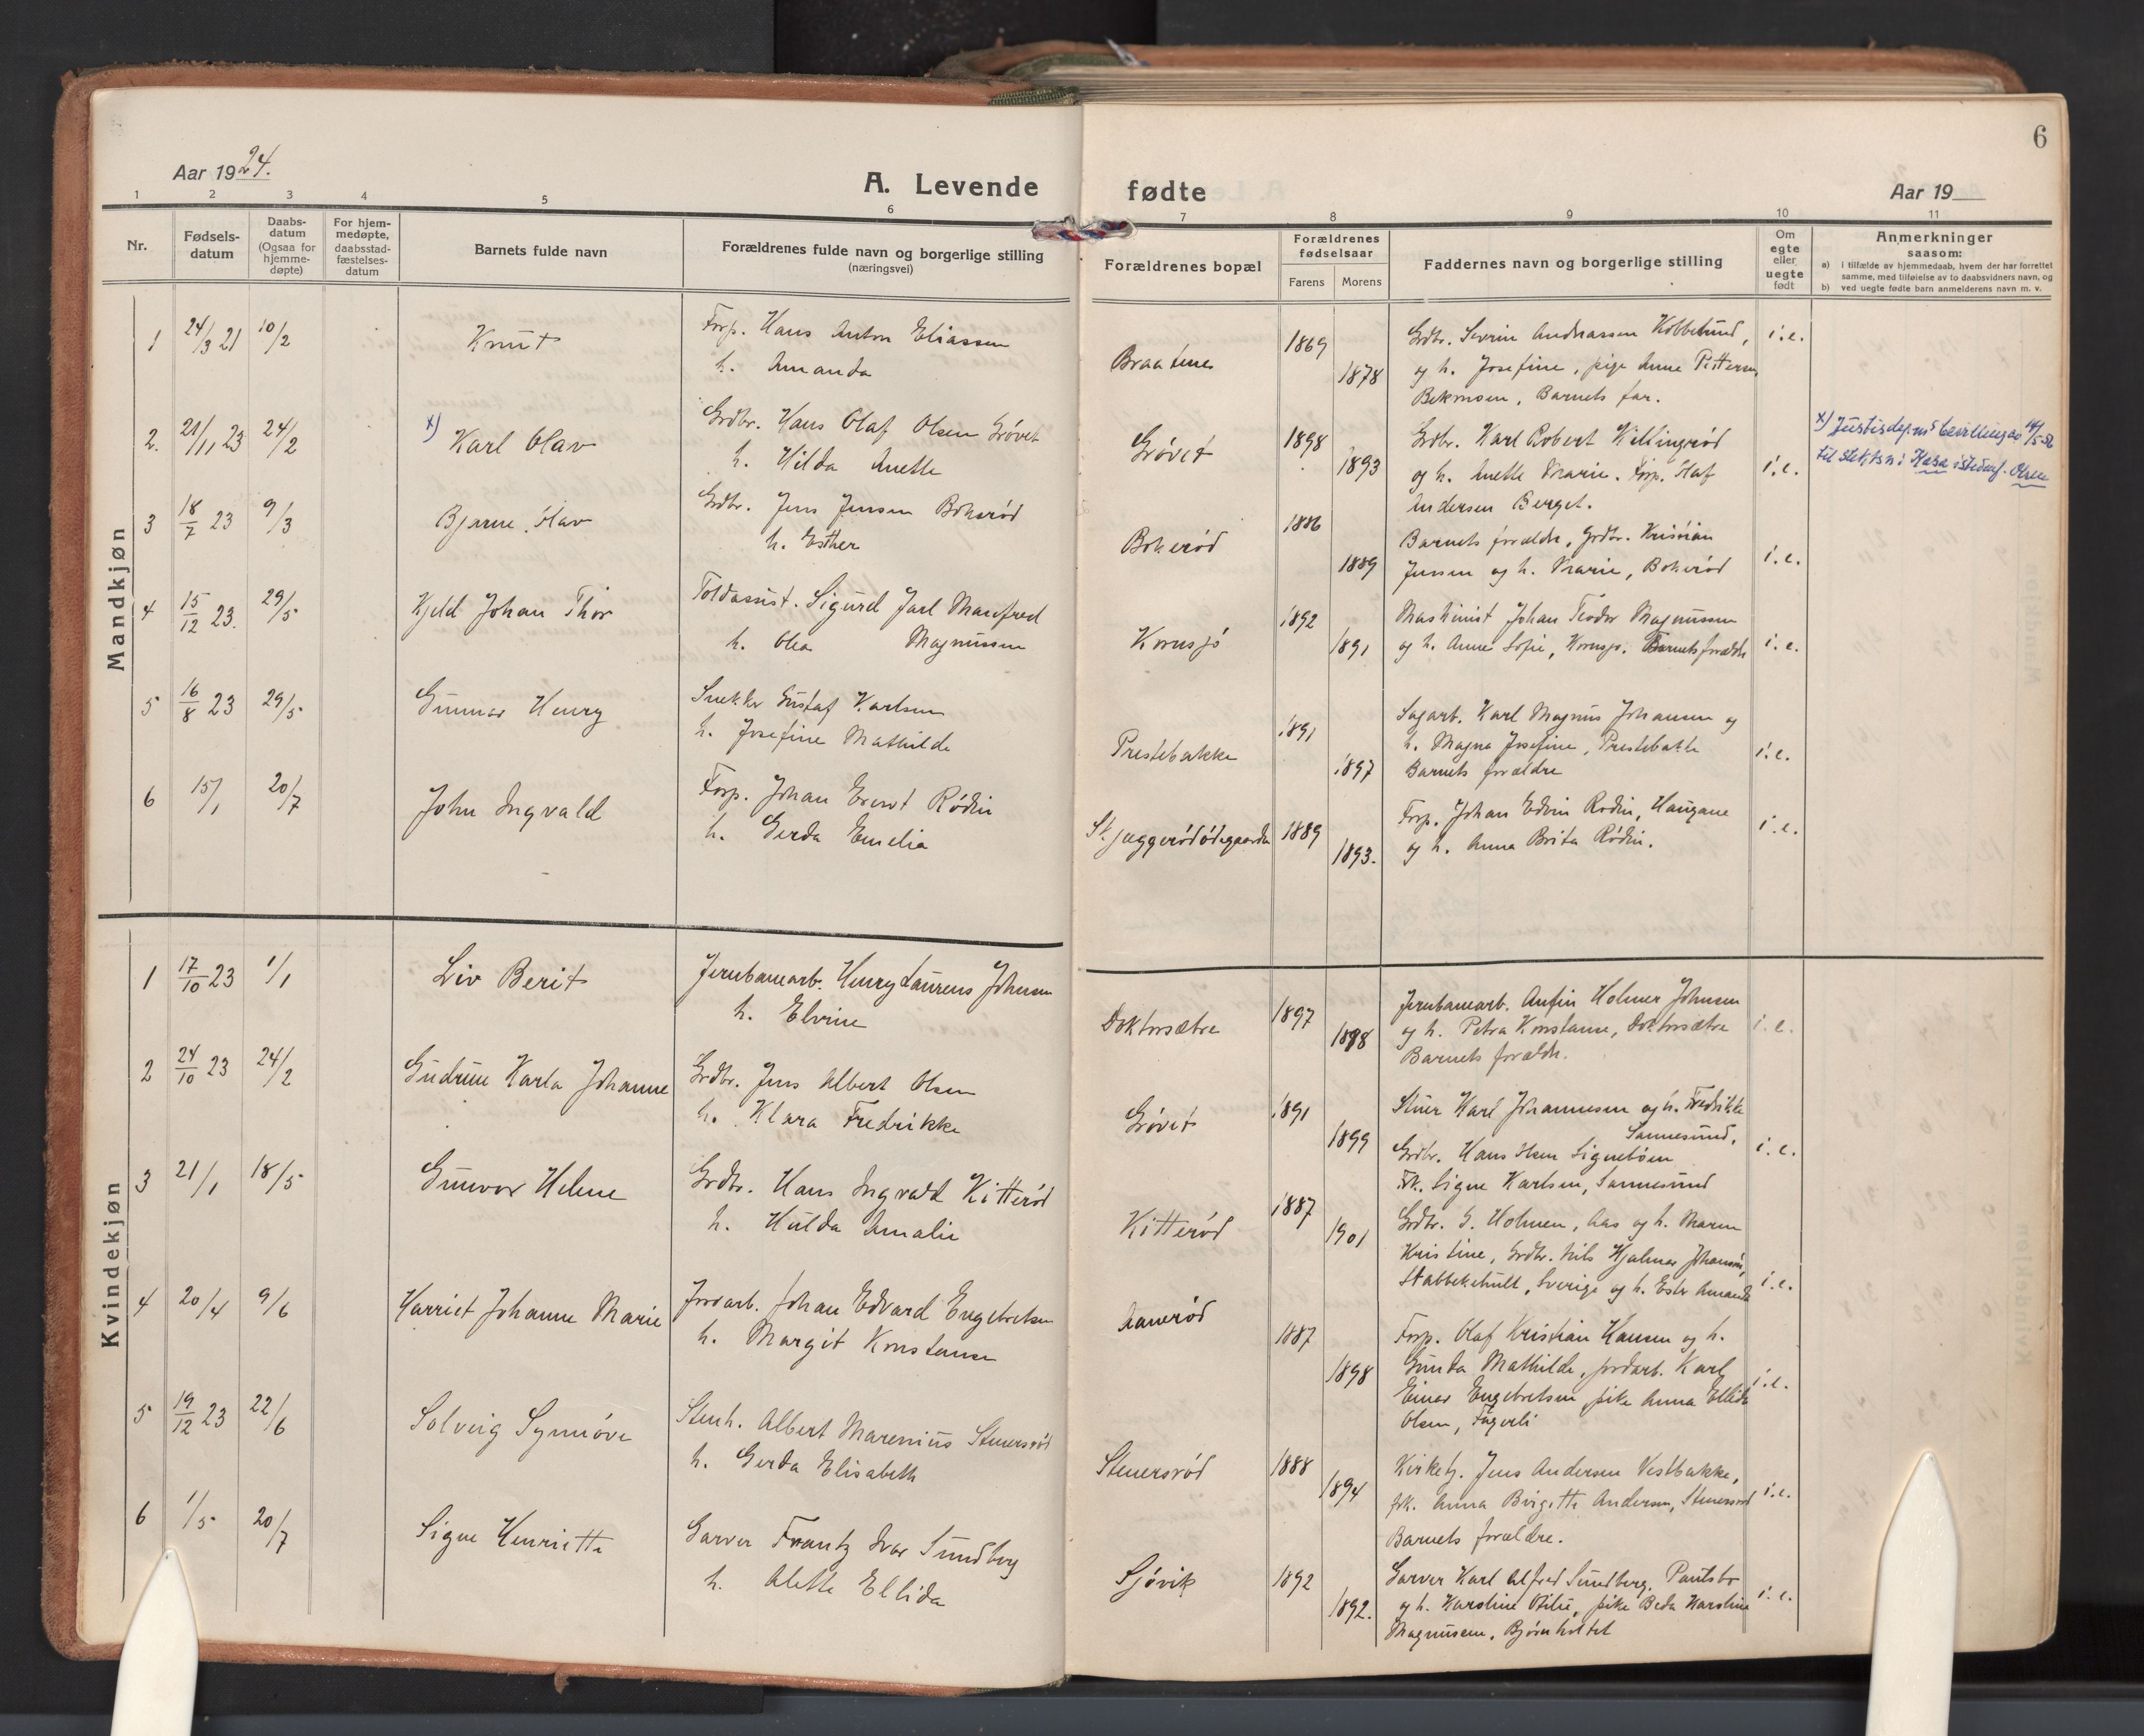 6
Aar 1924.
A. Levende fødte
Aar 19
1 2 3 4 5 6 7 8 9 10 11
Nr.
Fødsels-
datum
Daabs-
datum
(Ogsaa for
hjemme-
døpte)
For hjem-
medøpte,
daabsstad-
fæstelses-
datum
Barnets fulde navn
Forældrenes fulde navn og borgerlige stilling
(næringsvei)
Forældrenes bopæl
Forældrenes
fødselsaar
Farens Morens
Faddernes navn og borgerlige stilling
Om
egte
eller
uegte
født
Anmerkninger
saasom:
a) i tilfælde av hjemmedaab, hvem der har forrettet
samme, med tilføielse av to daabsvidners navn, og
b) ved uegte fødte barn anmelderens navn m. v.
Mandkjøn
1 24/3 21 10/2 Knut Forp. Hans Anton Eliassen
h. Amanda
Braatene 1869 1878
Grdbr. Severin Andreassen Kolbelund,
og h. Josefine, pige Anne Pettersen,
Bekmoen, Barnets far.
i.e.
2. 21/11 23 24/2 x) Karl Olav Grdbr. Hans Olaf Olsen Grøvet
h. Hilda Anette
Grøvet 1898 1893
Grdbr. Karl Robert Killingrød
og h. Anette Marie. Forp. Olaf
Andersen Berget.
i.e.
x) Justisdep.ns bevilling av 14/5-52
til slektsn: Kasa istedenf. Olsen
3 18/7 23 9/3 Bjarne Olav Grdbr. Jens Jensen Bokerød
h. Esther
Bokerød 1886 1889
Barnets forældre, Grdbr. Kristian
Jensen og h. Marie, Bokerød
i.e.
4 15/12 23. 29/5 Kjeld Johan Thor Toldassist. Sigurd Jarl Manfred
h. Olea Magnussen
Kornsjø 1892 1891
Maskinist Johan Teodor Magnussen
og h. Anne Sofie, Kornsjø. Barnets forældre
i.e.
5 16/8 23 29/5 Gunnar Henry Snekker Gustaf Karlsen
h. Josefine Mathilde
Prestebakke 1891 1897
Sagarb. Karl Magnus Johansen og
h. Magna Josefine, Prestebakke
Barnets forældre
i.e.
6 15/1 20/7 John Ingvald Forp. Johan Ernst Rødin
h. Gerda Emelia
St. jaggerødødegaarden 1889 1893.
Forp. Johan Edvin Rodin, Haugane
og h. Anna Brita Rødin.
i.e.
Kvindekjøn
1 17/10 23 1/1 Liv Berit Jernbanearb. Henry Laurens Johnsen
h. Elvine
Doktorsætre 1897 1898
Jernbanearb. Anfin Holmer Johnsen
og h. Petra Konstanse, Doktorsætre
Barnets forældre.
i.e.
2 24/10 23 24/2 Gudrun Karla Johanne Grdbr. Jens Albert Olsen
h. Klara Fredrikke
Grøvet 1891 1899
Stuer Karl Johannesen og h. Fredrikke
Sannesund,
Grdbr. Hans Olsen Signebøen
Frk. Signe Karlsen, Sannesund
i.e.
3 21/1 18/5 Gunvor Helene Grdbr. Hans Ingvald Kitterød
h. Hulda Amalie
Kitterød 1887 1901
Grdbr. G. Holmen, Aas og h. Maren
Kristine, Grdbr. Nils Hjalmar Johanson,
Stabbekehult, Sverige og h. Ester Amanda
i.e.
4 20/4 9/6 Harriet Johanne Marie Jordarb. Johan Edvard Engebretsen
h. Margit Konstanse
Aanerød 1887 1898
Forp. Olaf Kristian Hansen og h.
Gunda Mathilde, jordarb. Karl
Einar Engebretsen pike Anna Ellida
Olsen, Fagerli
i.e.
5 19/12 23 22/6 Solveig Synnøve Stenh. Albert Marenius Stenersrød
h. Gerda Elisabeth
Stenersrød 1888 1894
Kirketj. Jens Andersen Vestbakke,
frk. Anna Birgitte Andersen, Stenersrød
Barnets forældre.
i.e.
6 1/5 20/7 Signe Henriette Garver Frantz Ivar Sundberg
h. Alette Ellida
Sjøvik 1892 1892.
Garver Karl Alfred Sundberg, Paulsbo
og h. Karoline Otilie, pike Beda Karoline
Magnussen, Bjørnholtet
i.e.